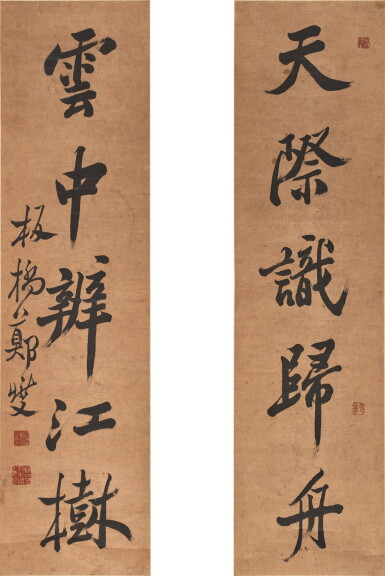 天際識歸舟
雲中辨江樹
板橋鄭燮